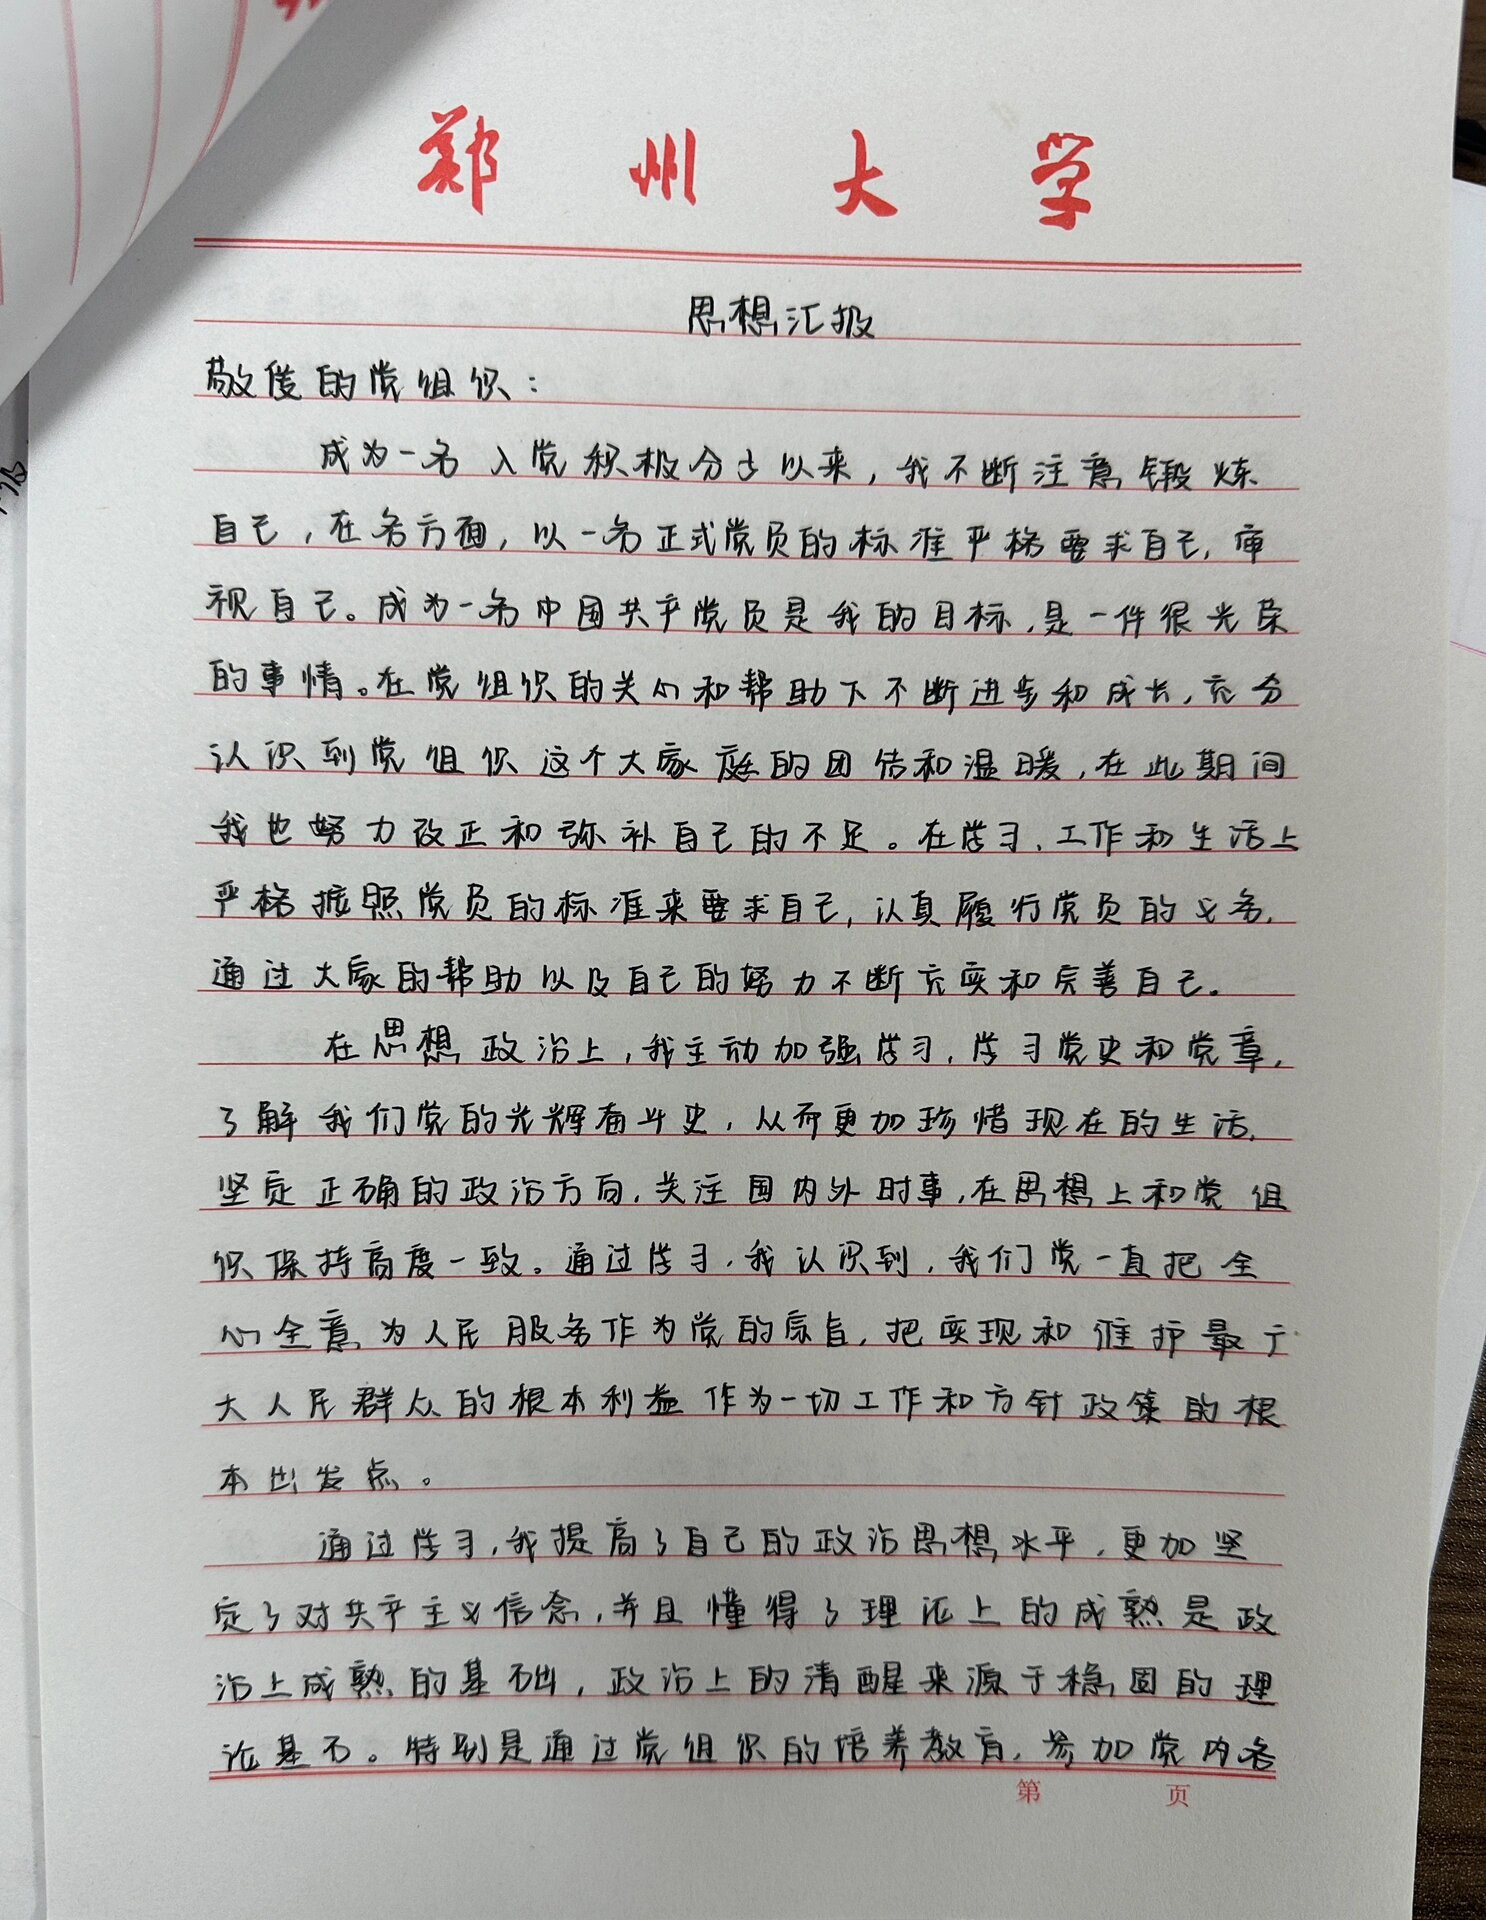 郑州大学
思想汇报
敬爱的党组织：
成为一名入党积极分子以来，我不断注意锻炼
自己，在各方面，以一名正式党员的标准严格要求自己，审
视自己。成为一名中国共产党员是我的目标，是一件很光荣
的事情。在党组织的关心和帮助下不断进步和成长，充分
认识到党组织这个大家庭的团结和温暖，在此期间
我也努力改正和弥补自己的不足。在学习、工作和生活上
严格按照党员的标准来要求自己，认真履行党员的义务，
通过大家的帮助以及自己的努力不断充实和完善自己。
在思想政治上，我主动加强学习，学习党史和党章，
了解我们党的光辉奋斗史，从而更加珍惜现在的生活，
坚定正确的政治方向，关注国内外时事，在思想上和党组
织保持高度一致。通过学习，我认识到，我们党一直把全
心全意为人民服务作为党的宗旨，把实现和维护最广
大人民群众的根本利益作为一切工作和方针政策的根
本出发点。
通过学习，我提高了自己的政治思想水平，更加坚
定了对共产主义信念，并且懂得了理论上的成熟是政
治上成熟的基础，政治上的清醒来源于稳固的理
论基石。特别是通过党组织的培养教育，参加党内各
第 页